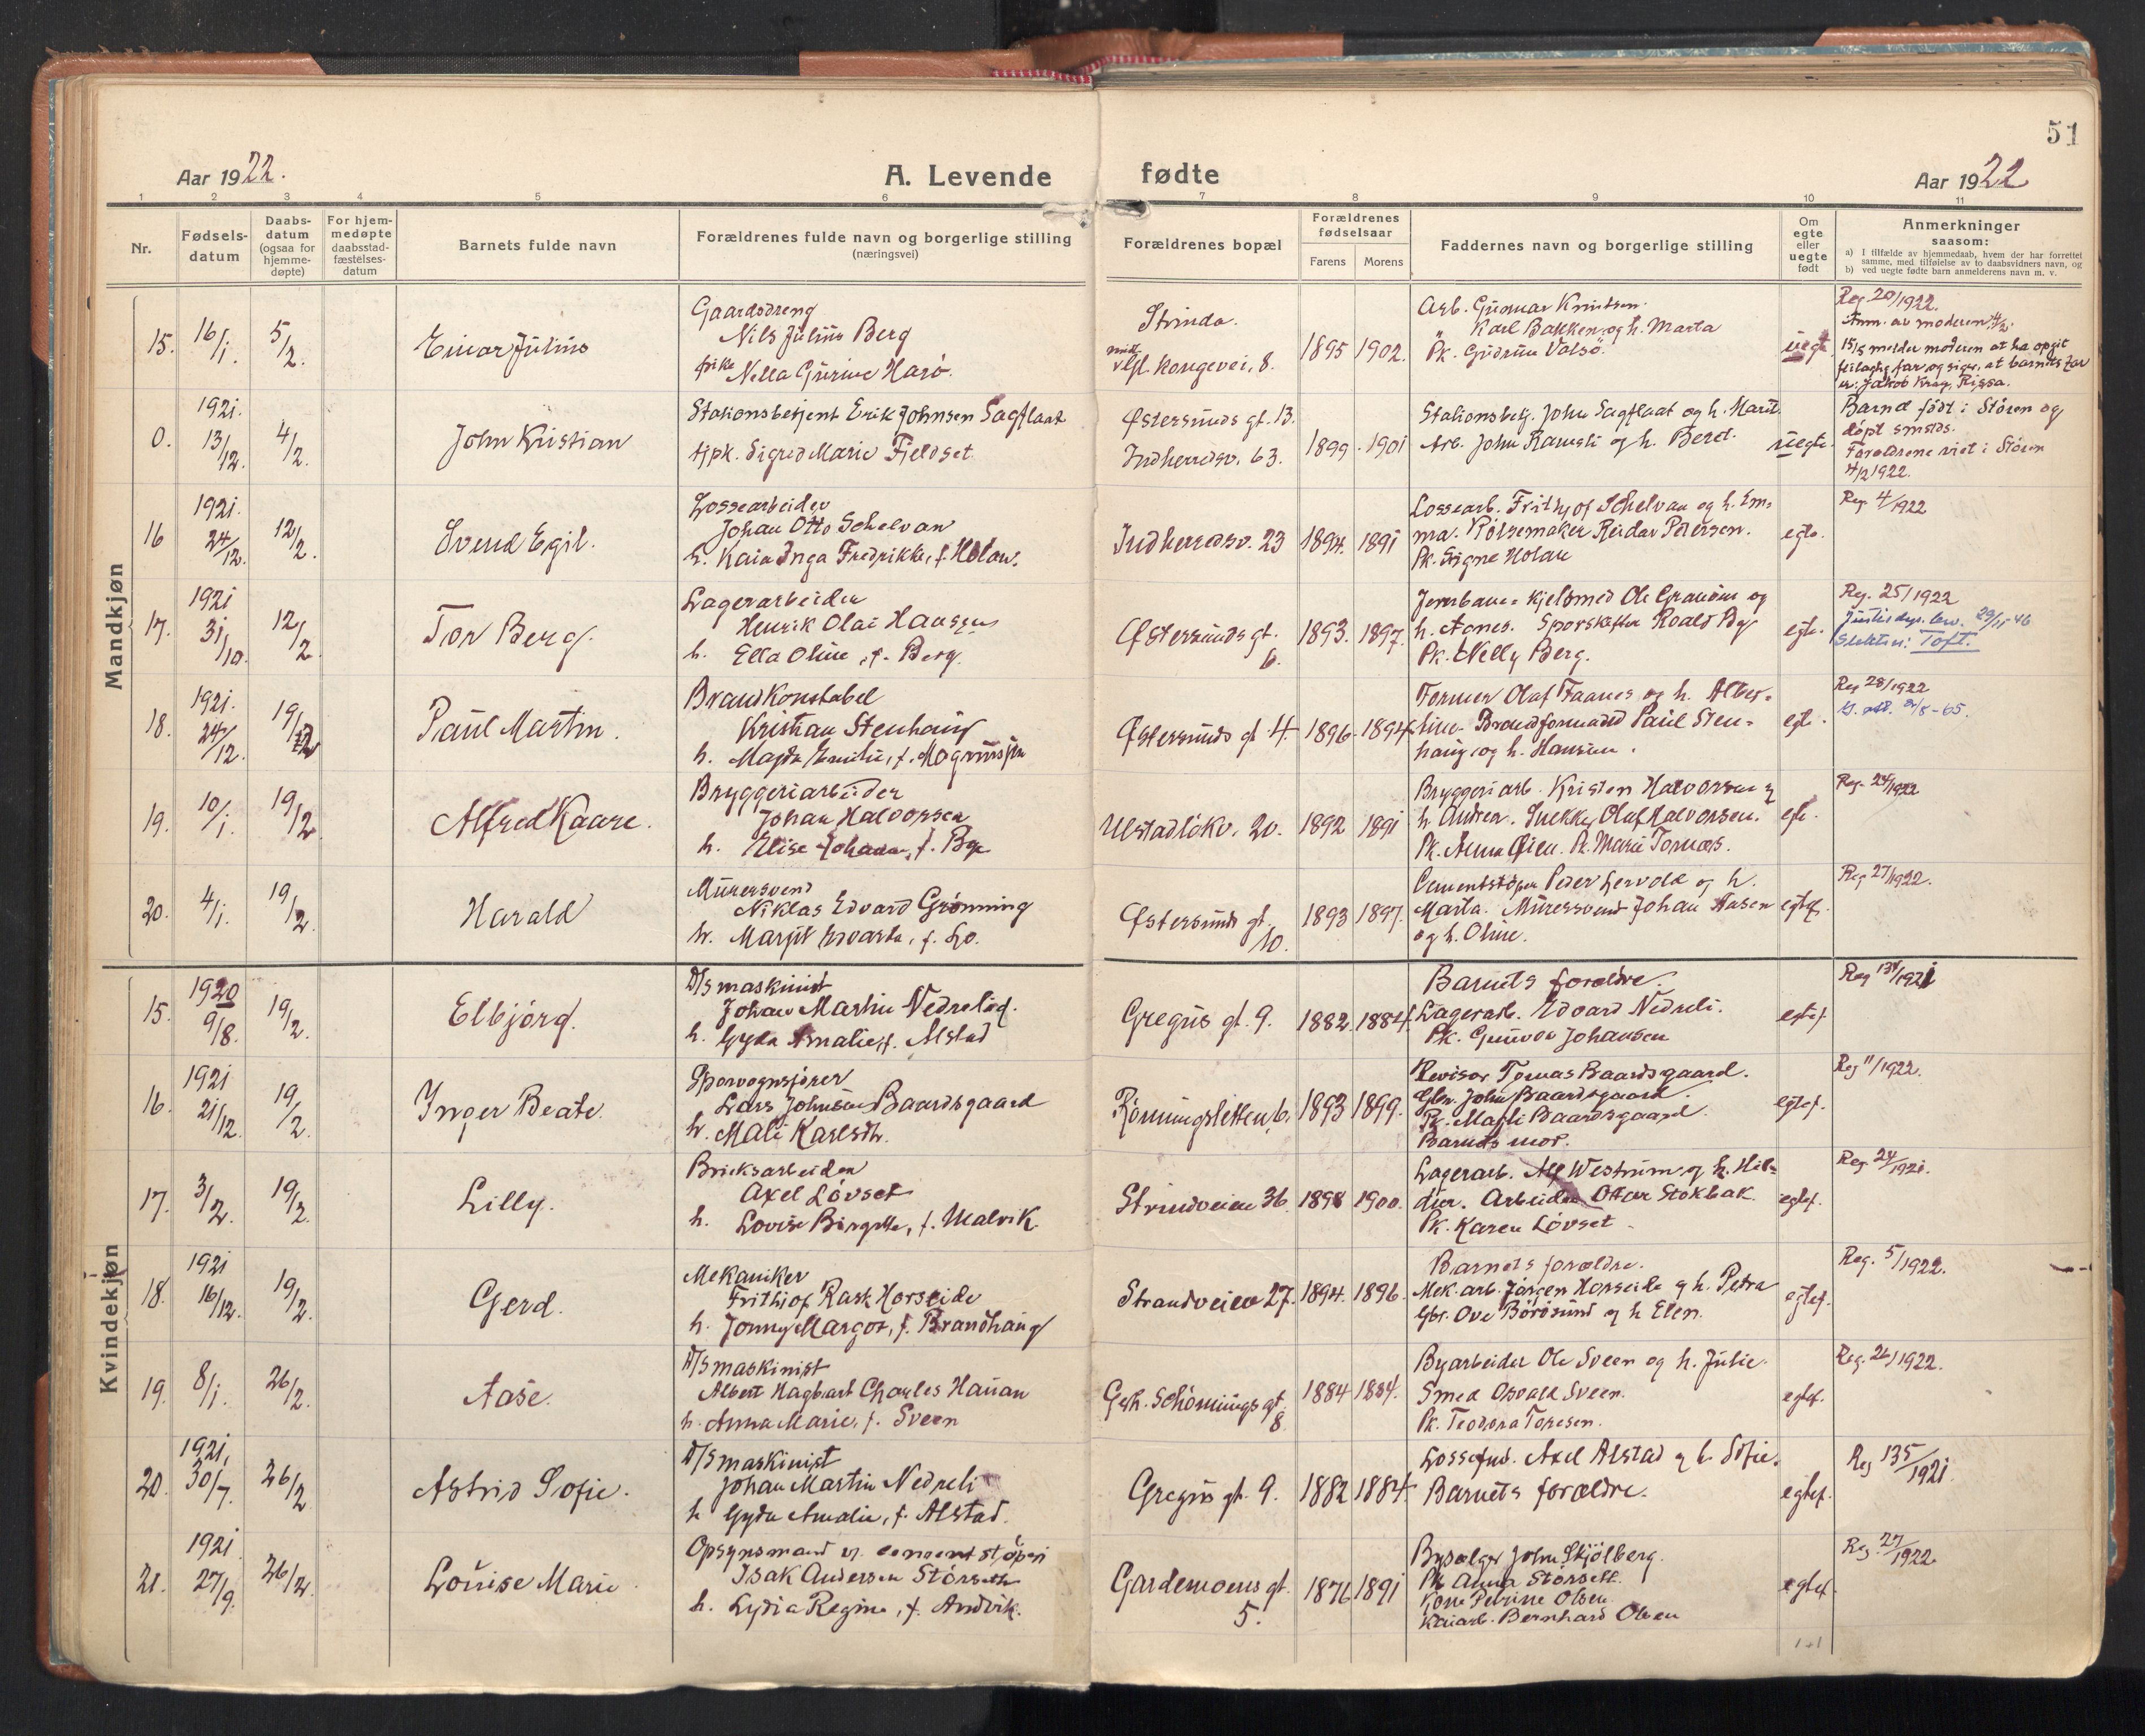 51
Aar 1922.
A. Levende fødte
Aar 1922
1 2 3 4 5 6 7 8 9 10 11
Nr.
Fødsels-
datum
Daabs-
datum
(ogsaa for
hjemme-
døpte)
For hjem-
medøpte
daabsstad-
fæstelses-
datum
Barnets fulde navn
Forældrenes fulde navn og borgerlige stilling
(næringsvei)
Forældrenes bopæl
Forældrenes
fødselsaar
Farens Morens
Faddernes navn og borgerlige stilling
Om
egte
eller
uegte
født
Anmerkninger
saasom:
a) I tilfælde av hjemmedaab, hvem der har forrettet
samme, med tilføielse av to daabsvidners navn, og
b) ved uegte fødte barn anmelderens navn m. v.
Mandkjøn
15. 16/1. 5/2. Einar Julius
Gaardsdreng
Nils Julius Berg
Nella Gurine Harø.
Strinda.
kongevei, 8.
1895 1902.
Arb. Gunnar Knudsen.
Karl Bakken og h. Marta
Pk. Gudrun Valsø.
uegte
Reg. 20/1922.
Anm. av moderen 4/2.
15/5 melder moderen at ha opgit
feilagtig far og siger, at barnets far
er: Jakob Krag, Rissa.
0. 1921. 13/12. 4/2. John Kristian
Stationsbetjent Erik Johnsen Sagflaat
tjpk. Sigrid Marie Fjeldset
Østersunds gt. 13.
Indherredsv. 63.
1899. 1901
Stationsbetj. John Sagflaat og h. Marit.
Arb. John Ramsli og h. Beret.
uegte.
Barnet født i Støren og
døpt smstds.
Forældrene viet i Støren
4/2 1922.
16 1921. 24/12. 12/2. Svend Egil.
Lossearbeider
Johan Otto Schelvan
h. Kaia Inga Fredrikke, f. Holan.
Indherredsv. 23 1894. 1891
Lossearb. Frithjof Schelvan og h. Em-
ma. Pølsemaker Reidar Petersen.
Pk. Signe Holan
egte.
Reg 4/1922
17. 1921 31/10. 12/2 Tor Berg.
Lagerarbeider
Henrik Olai Hansen
h. Ella Oline, f. Berg.
Østersunds gt.
6.
1893. 1897.
Jernbane-kjelsmed Ole Granøien og
h. Agnes. Roald Berg
Pk. Nelly Berg.
egte.
Reg. 25/1922
Justisdep. bev. 29/11 46
Slektsn: Toft.
18. 1921. 24/12. 19/2 Paul Martin.
Brandkonstabel
Kristian Stenhaug
h. Magda Emilie, f. Magnussen
Østersunds gt 4. 1896. 1894
Former Olaf Faanes og h. Alber-
tine. Brandformand Paul Sten-
haug og h. Hansine.
egte.
Reg 28/1922
19. 10/1. 19/2. Alfred Kaare.
Bryggeriarbeider
Johan Halvorsen
h. Elise Johanna, f. Bye
Ulstadløkv. 20. 1892 1891
Bryggeriarb. Kristen Halvorsen og
h. Andrea. Snekker Olaf Halvorsen.
Pk. Anna Øien. Pk. Marie Tornæs.
egte.
Reg. 24/1922
20. 4/1. 19/2. Harald
Murersvend
Niklas Edvard Grønning
h. Margit Edvarda, f. Lo.
Østersunds gt.
10.
1893 1897.
Cementstøper Peder Gervold og h.
Marta. Murersvend Johan Aasen
og h. Oline.
egtef.
Reg 27/1922.
Kvindekjøn
15. 1920 9/8. 19/2. Elbjørg.
D/S maskinist
Johan Martin Nedreli.
h. Gyda Amalie, f. Alstad
Gregus gt. 9. 1882 1884.
Barnets forældre.
Lagerarb. Edvard Nedreli.
Pk. Gunvor Johansen
egtef.
Reg 134/1921
16. 1921 21/12. 19/2. Inger Beate.
Sporvognsfører
Lars Johnsen Baardsgaard
h. Mali Karlsdtr.
Rønningsletten 6. 1893 1899.
Revisor Tomas Baardsgaard.
Gbr. John Baardsgaard.
Pk. Magli Baardsgaard.
Barnets mor.
egtef.
Reg 11/1922.
17. 3/2. 19/2. Lilly.
Bruksarbeider
Axel Løvset
h. Lovise Birgitte, f. Malvik
Strindveien 36 1898 1900.
Lagerarb. Alf Westrum og h. Hil-
dur. Arbeider Ottar Stokbak
Pk. Karen Løvset
egtef.
Reg 24/1921.
18. 1921 16/12. 19/2. Gerd.
Mekaniker
Frithjof Rask Horseide
h. Jonny Margot, f. Brandhaug
Strandveien 27. 1894. 1896.
Barnets forældre.
Mek. arb. Jørgen Horseide og h. Petra
Gbr. Ove Børøsund og h Elen.
egtef.
Reg. 5/1922.
19. 8/1. 26/2. Aase.
D/S maskinist
Albert Hagbart Charles Hauan
h. Anna Marie, f. Sveen
Gerh. Schønnings gt
8
1884 1884.
Byarbeider Ole Sveen og h. Julie.
Smed Osvald Sveen.
Pk. Teodora Toresen.
egtef.
Reg. 26/1922.
20. 1921. 30/7. 26/2 Astrid Sofie.
D/S maskinist
Johan Martin Nedreli
h Gyda Amalie, f. Alstad.
Gregus gt. 9. 1882 1884.
Lossefmd. Axel Alstad og h. Sofie.
Barnets forældre.
egtef.
Reg 135/1921.
21. 1921 27/9. 26/2. Louise Marie
Opsynsmand v. cementstøperi
Isak Andersen Størseth
h. Lydia Regine, f. Andvik.
Gardemoens gt.
5.
1876 1891
Bysælger John Skjølberg.
Pk Anna Størseth.
Kone Petrine Olsen
Kaiarb. Bernhard Olsen
egtef.
Reg. 27/1922
1+1